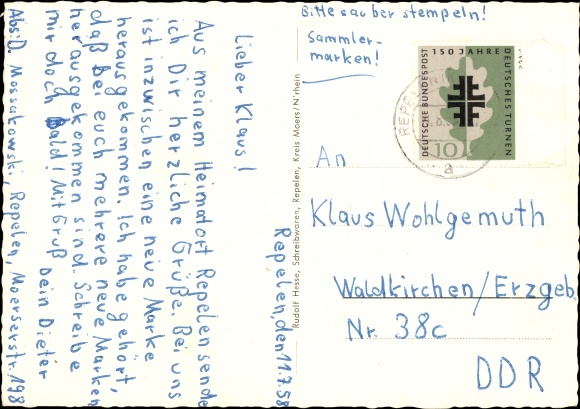 Bitte sauber stempeln!
Sammler-
marken!
150 JAHRE
DEUTSCHES TURNEN
DEUTSCHE BUNDESPOST
10
REPELEN
a
An
Klaus Wohlgemuth
Waldkirchen/Erzgeb.
Nr. 38c
DDR
Rudolf Hesse, Schreibwaren, Repelen, Kreis Moers/N'rhein
Repelen, den 11.7.58
Lieber Klaus!
Aus meinem Heimatort Repelen sende
ich Dir herzliche Grüße. Bei uns
ist inzwischen eine neue Marke
herausgekommen. Ich habe gehört,
daß bei euch mehrere neue Marken
herausgekommen sind. Schreibe
mir doch bald! Mit Gruß Dein Dieter
Abs: D. Mossakowski, Repelen, Moerserstr. 198